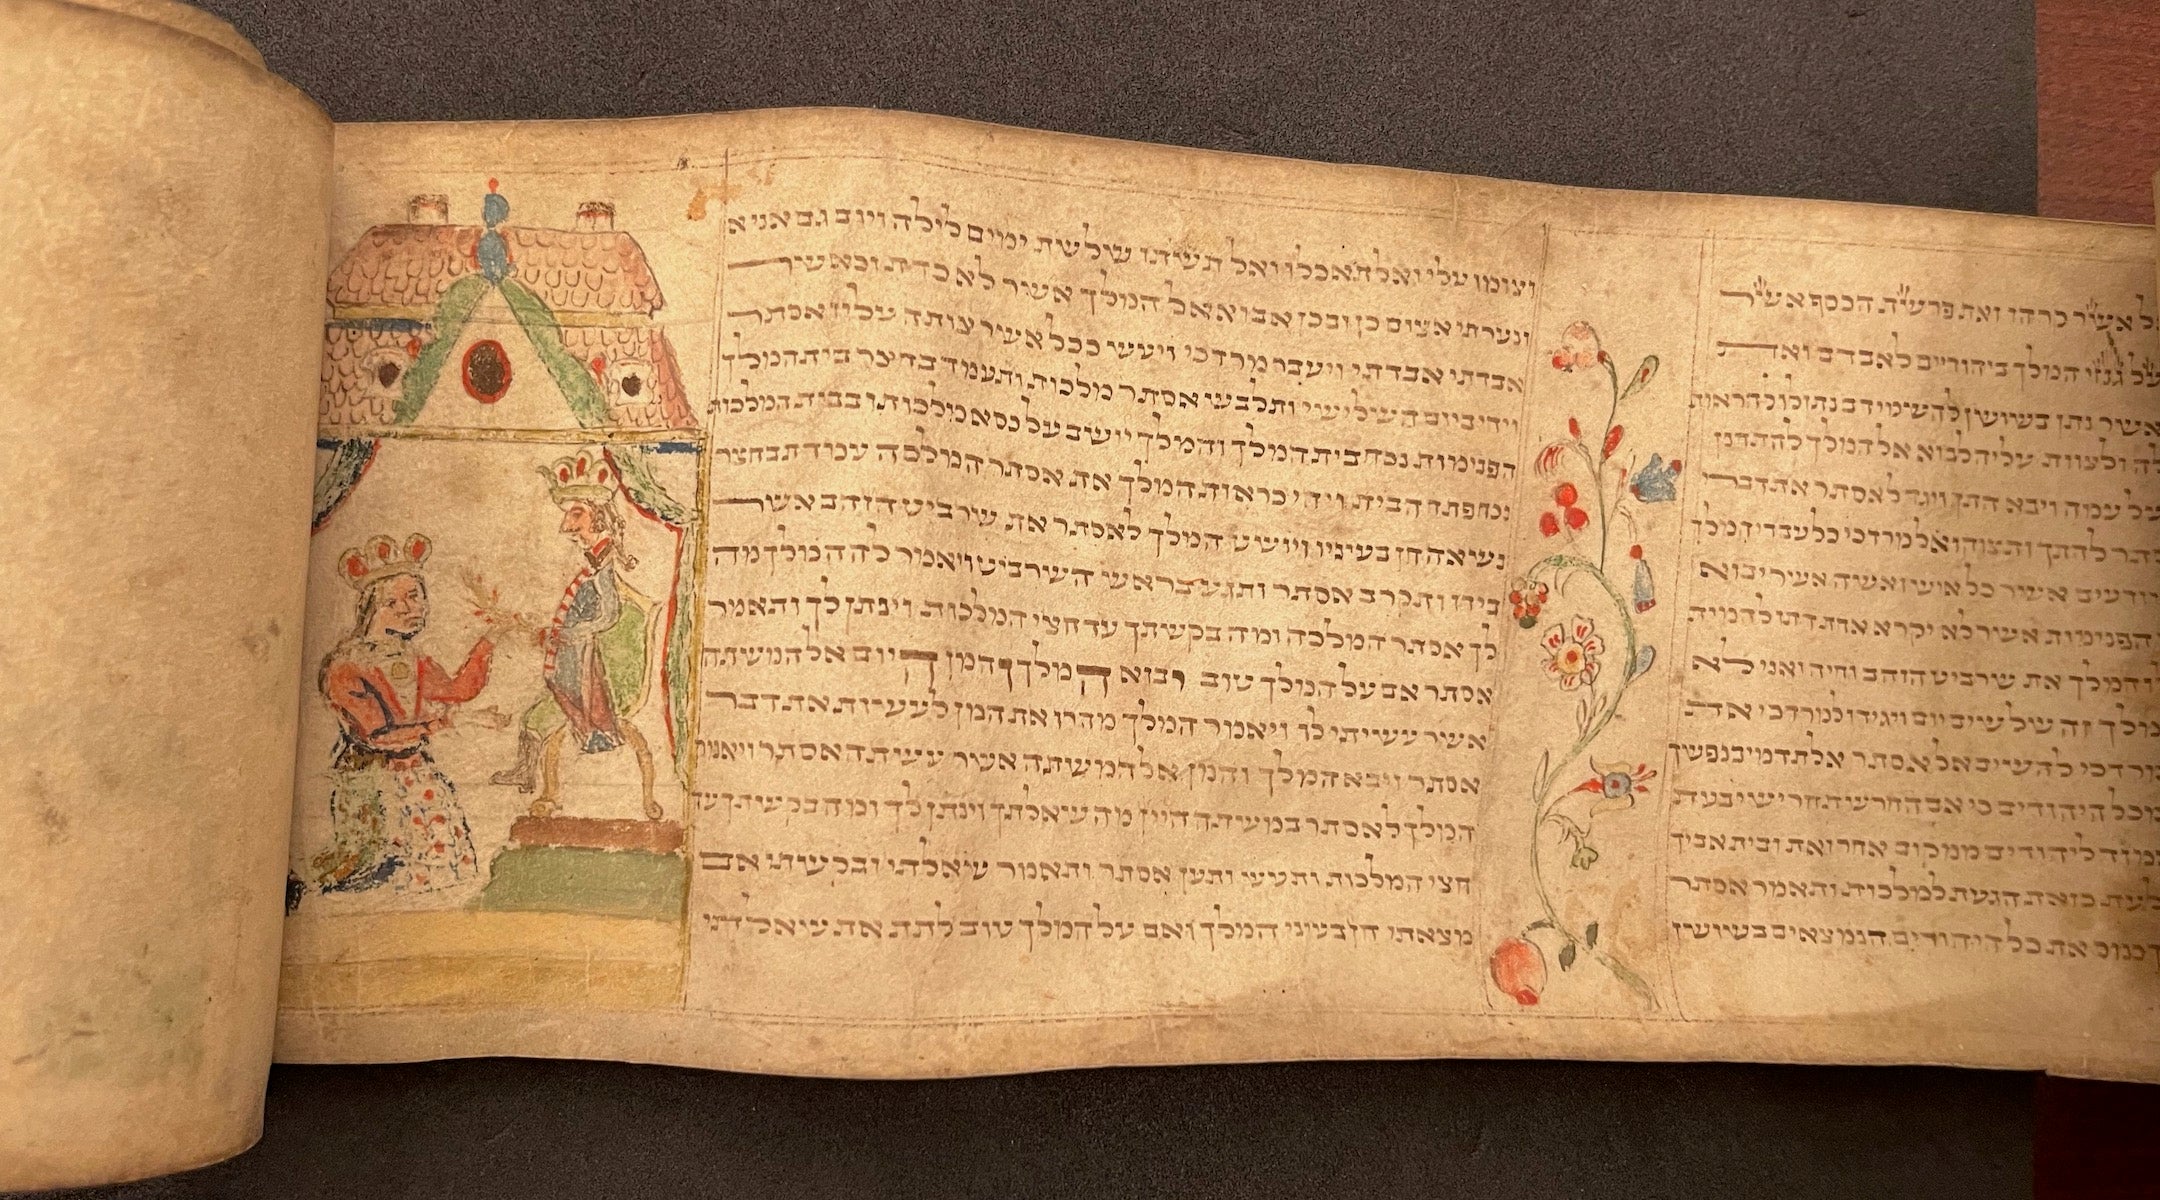 אשר קרהו ואת פרשת הכסף אשר
על גנזי המלך ביהודיים לאבדם ואת
אשר נתן בשושן להשמידם נתן לו להראות
לה ולצוות עליה לבוא אל המלך להתחנן
על עמה ויבא התך ויגד לאסתר את דברי
להתך ותצוהו אל מרדכי כל עבדי המלך
יודעים אשר כל איש ואשה אשר יבוא
הפנימית אשר לא יקרא אחת דתו להמית
לו המלך את שרביט הזהב וחיה ואני לא
המלך זה שלשים יום ויגידו למרדכי את
מרדכי להשיב אל אסתר אל תדמי בנפשך
מכל היהודים כי אם החרש תחרישי בעת
יעמוד ליהודים ממקום אחר ואת ובית אביך
לעת כזאת הגעת למלכות ותאמר אסתר
כנוס את כל היהודים הנמצאים בשושן
וצומו עלי ואל תאכלו ואל תשתו שלשת ימים לילה ויום גם אני א
ונערתי אצום כן ובכן אבוא אל המלך אשר לא כדת וכאשר
אבדתי אבדתי ויעבר מרדכי ויעש ככל אשר צותה עליו אסתר
ויהי ביום השלישי ותלבש אסתר מלכות ותעמד בחצר בית המלך
הפנימית נכח בית המלך והמלך יושב על כסא מלכותו בבית המלכות
נכח פתח הבית ויהי כראות המלך את אסתר המלכה עמדת בחצר
נשאה חן בעיניו ויושט המלך לאסתר את שרביט הזהב אשר
בידו ותקרב אסתר ותגע בראש השרביט ויאמר לה המלך מה
לך אסתר המלכה ומה בקשתך עד חצי המלכות וינתן לך ותאמר
אסתר אם על המלך טוב יבוא המלך והמן היום אל המשתה
אשר עשיתי לו ויאמר המלך מהרו את המן לעשות את דבר
אסתר ויבא המלך והמן אל המשתה אשר עשתה אסתר ויאמר
המלך לאסתר במשתה היין מה שאלתך וינתן לך ומה בקשתך עד
חצי המלכות ותעש ותען אסתר ותאמר שאלתי ובקשתי אם
מצאתי חן בעיני המלך ואם על המלך טוב לתת את שאלתי